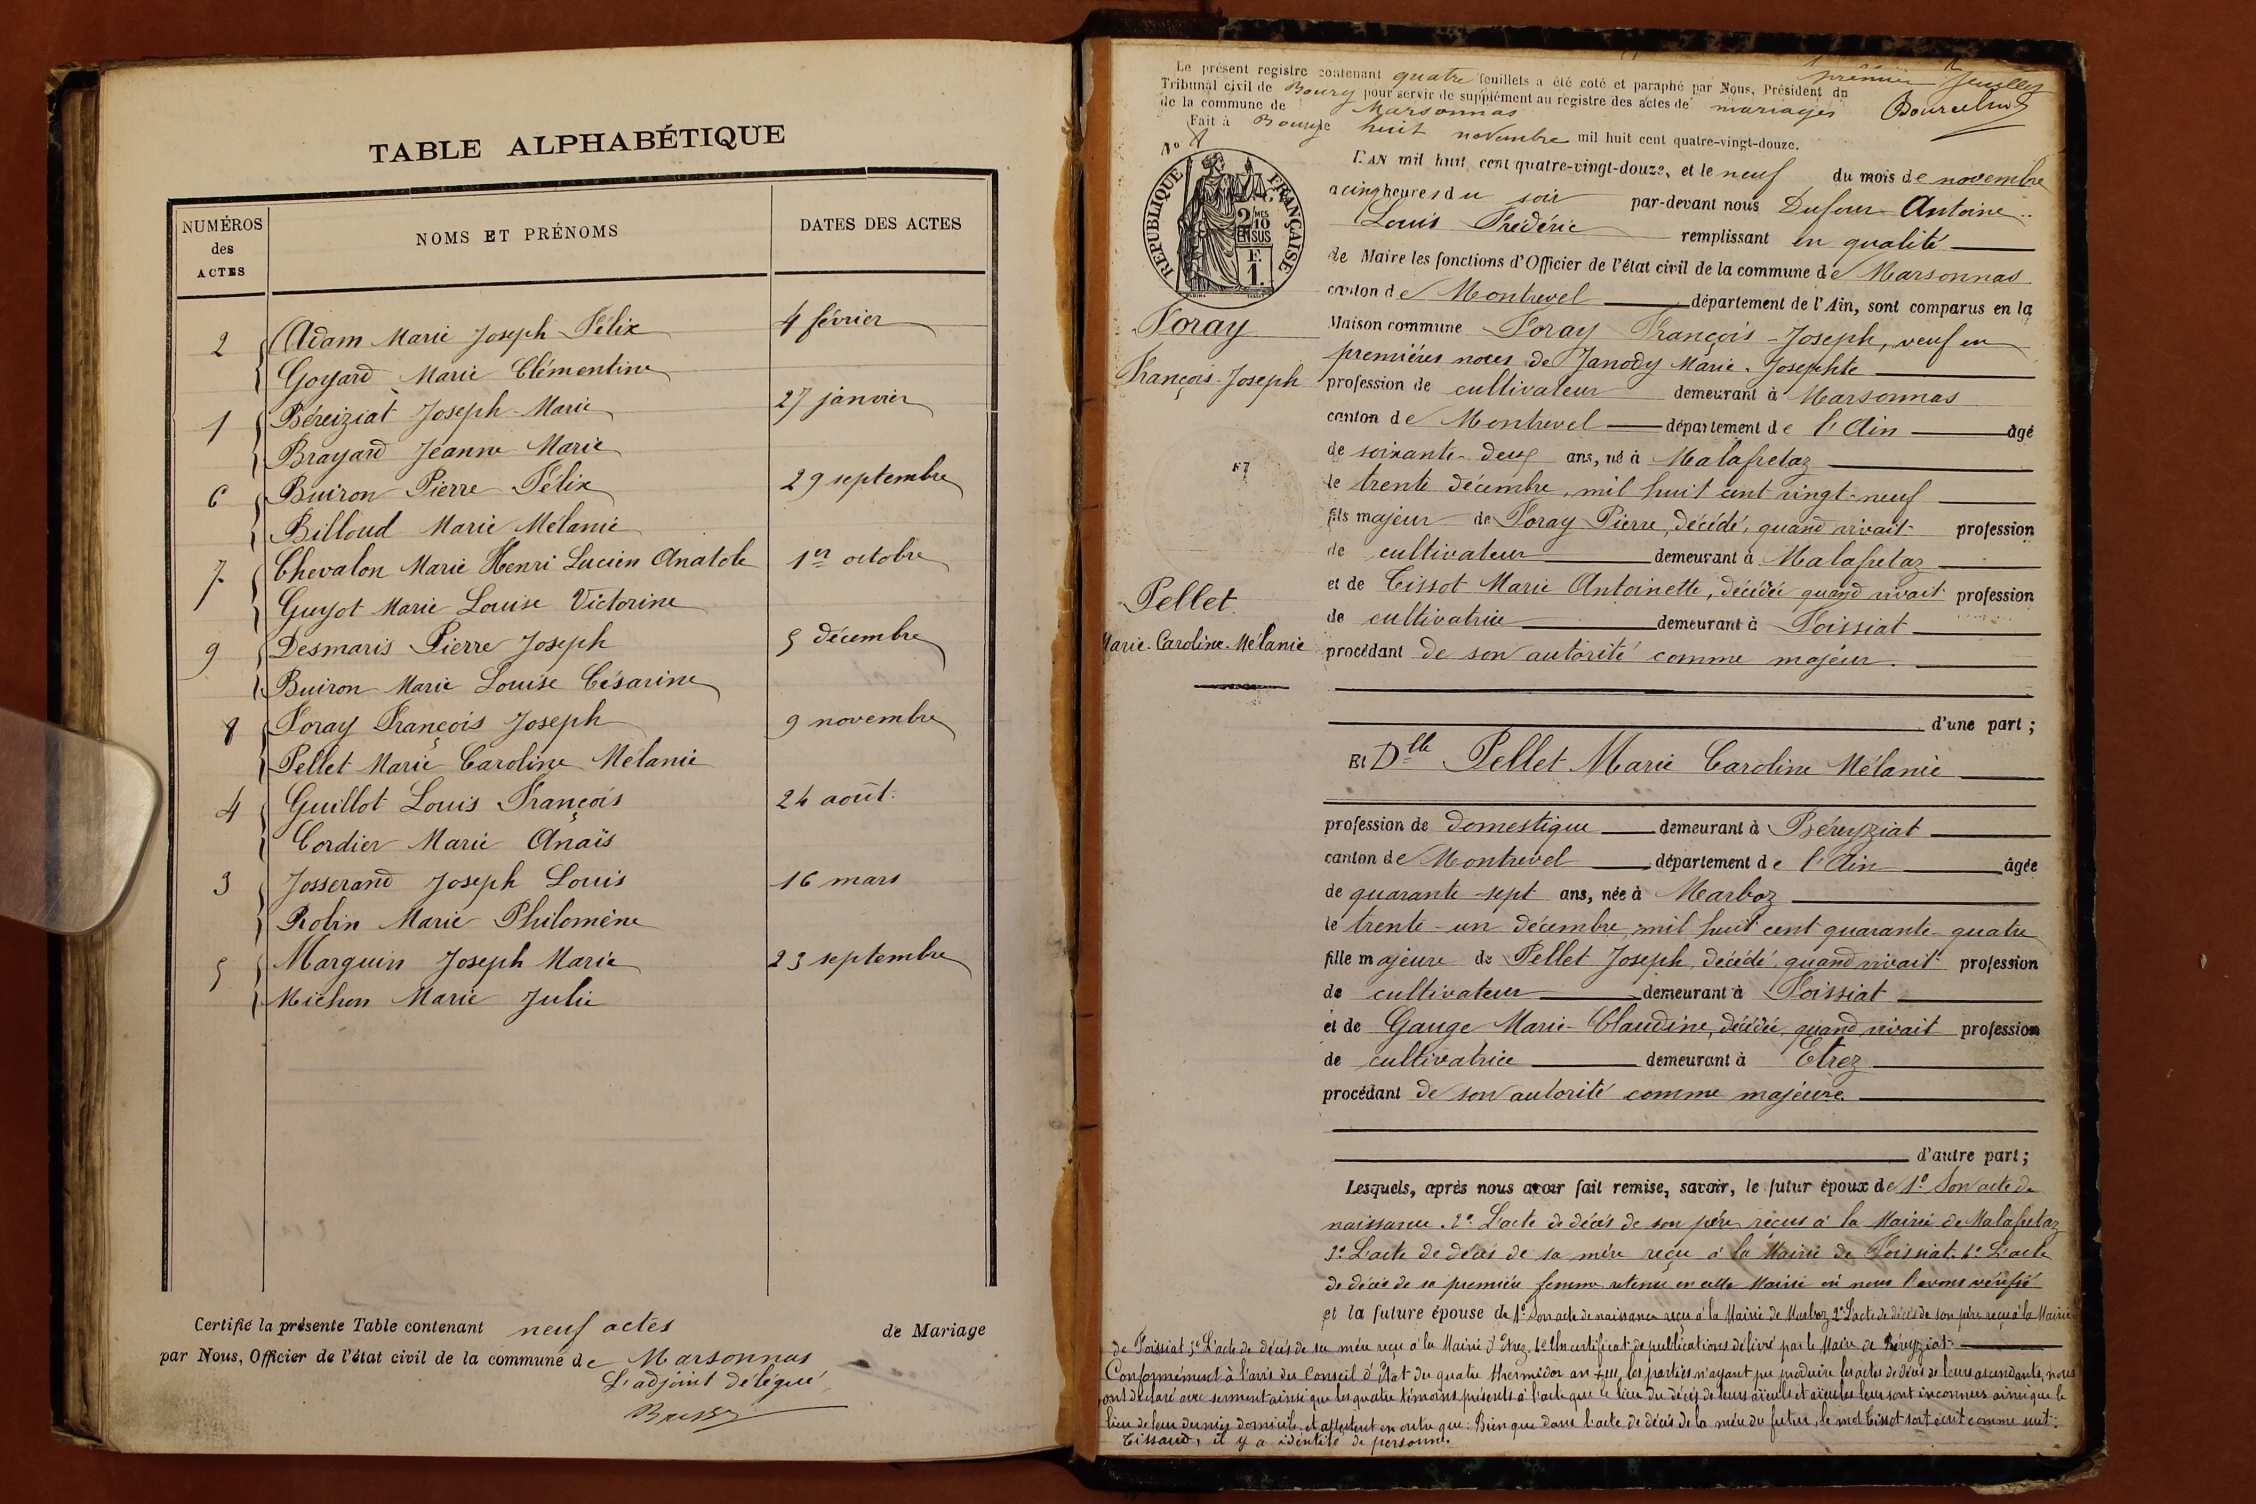 TABLE ALPHABÉTIQUE
NUMÉROS des ACTES
NOMS ET PRÉNOMS
DATES DES ACTES
2 Adam Marie Joseph Félix 4 février
Goyard Marie Clémentine
1 Béreiziat Joseph-Marie 27 janvier
Brayard Jeanne Marie
6 Buiron Pierre Félix 29 septembre
Billoud Marie Mélanie
7 Chevalon Marie Henri Lucien Anatole 1er octobre
Guyot Marie Louise Victorine
9 Desmaris Pierre Joseph 5 décembre
Buiron Marie Louise Césarine
8 Foray François Joseph 9 novembre
Pellet Marie Caroline Mélanie
4 Guillot Louis François 24 août
Cordier Marie Anaïs
3 Josserand Joseph Louis 16 mars
Robin Marie Philomène
5 Marguin Joseph Marie 23 septembre
Michon Marie Julie
Certifié la présente Table contenant neuf actes de Mariage
par Nous, Officier de l'état civil de la commune de Marsonnas
L'adjoint délégué
premier feuillet
Le présent registre contenant quatre feuillets a été coté et paraphé par Nous, Président du
Tribunal civil de Bourg pour servir de supplément au registre des actes de mariages
de la commune de Marsonnas
Fait à Bourg le huit novembre mil huit cent quatre-vingt-douze.
No 8
RÉPUBLIQUE FRANÇAISE
2/10 MES EN SUS
F. 1.
L'AN mil huit cent quatre-vingt-douze, et le neuf du mois de novembre
a cinq heures du soir par-devant nous Dufour Antoine
Louis Frédéric remplissant en qualité
de Maire les fonctions d'Officier de l'état civil de la commune de Marsonnas
canton de Montrevel département de l'Ain, sont comparus en la
Foray
François-Joseph
Maison commune Foray François-Joseph, veuf en
premières noces de Janody Marie-Josephte
profession de cultivateur demeurant à Marsonnas
canton de Montrevel département de l'Ain âgé
de soixante-deux ans, né à Malafretaz
le trente décembre, mil huit cent vingt-neuf
fils majeur de Foray Pierre, décédé, quand vivait profession
de cultivateur demeurant à Malafretaz
et de Tissot Marie Antoinette, décédée quand vivait profession
de cultivatrice demeurant à Foissiat
procédant de son autorité comme majeur.
Pellet
Marie-Caroline-Mélanie
d'une part;
Et Dlle Pellet Marie Caroline Mélanie
profession de domestique demeurant à Béreyziat
canton de Montrevel département de l'Ain âgée
de quarante-sept ans, née à Marboz
le trente-un décembre, mil huit cent quarante-quatre
fille majeure de Pellet Joseph, décédé, quand vivait profession
de cultivateur demeurant à Foissiat
et de Gauge Marie-Claudine, décédée, quand vivait profession
de cultivatrice demeurant à Etrez
procédant de son autorité comme majeure
d'autre part;
Lesquels, après nous avoir fait remise, savoir, le futur époux de 1º Son acte de
naissance. 2º L'acte de décès de son père reçus à la Mairie de Malafretaz
3º L'acte de décès de sa mère reçu à la Mairie de Foissiat. 4º L'acte
de décès de sa première femme retenu en cette Mairie où nous l'avons vérifié
et la future épouse de 1º Son acte de naissance reçu à la Mairie de Marboz 2º L'acte de décès de son père reçu à la Mairie
de Foissiat 3º L'acte de décès de sa mère reçu à la Mairie d'Etrez. 4º Un certificat de publications délivré par le Maire de Béreyziat
Conformément à l'avis du Conseil d'État du quatre thermidor an XIII, les parties n'ayant pu produire les actes de décès de leurs ascendants, nous
ont déclaré avec serment ainsi que les quatre témoins présents à l'acte que le lieu du décès de leurs aïeuls et aïeules leur sont inconnus ainsi que le
lieu de leur dernier domicile, et attestent en outre que: Bien que dans l'acte de décès de la mère du futur, le mot Tissot soit écrit comme suit:
Tissaud, il y a identité de personne.